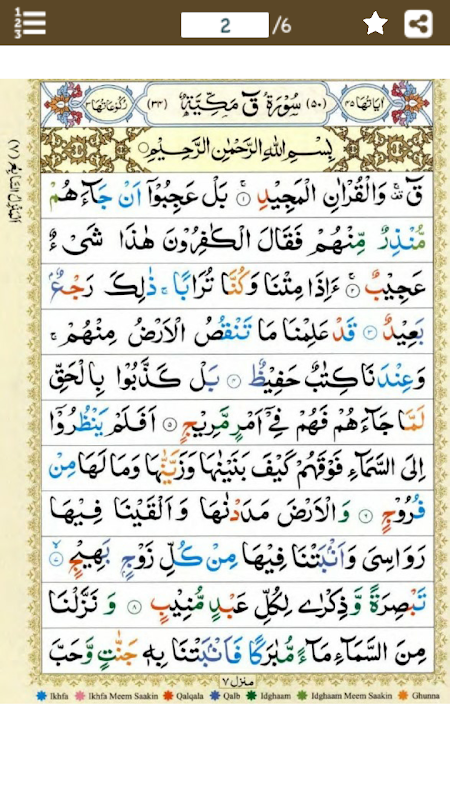 123
2 /6
اٰیَاتُهَا ۴۵ (۵۰) سُوْرَةُ قٓ مَكِّیَّةٌ (۳۴) رُكُوْعَاتُهَا ۳
بِسْمِ اللّٰهِ الرَّحْمٰنِ الرَّحِیْمِ
قٓ وَالْقُرْاٰنِ الْمَجِیْدِ ۱ بَلْ عَجِبُوْۤا اَنْ جَآءَهُمْ
مُّنْذِرٌ مِّنْهُمْ فَقَالَ الْكٰفِرُوْنَ هٰذَا شَیْءٌ
عَجِیْبٌ ۲ ءَاِذَا مِتْنَا وَكُنَّا تُرَابًا ۚ ذٰلِكَ رَجْعٌۢ
بَعِیْدٌ ۳ قَدْ عَلِمْنَا مَا تَنْقُصُ الْاَرْضُ مِنْهُمْ ۚ
وَعِنْدَنَا كِتٰبٌ حَفِیْظٌ ۴ بَلْ كَذَّبُوْا بِالْحَقِّ
لَمَّا جَآءَهُمْ فَهُمْ فِیْۤ اَمْرٍ مَّرِیْجٍ ۵ اَفَلَمْ یَنْظُرُوْۤا
اِلَى السَّمَآءِ فَوْقَهُمْ كَیْفَ بَنَیْنٰهَا وَزَیَّنّٰهَا وَمَا لَهَا مِنْ
فُرُوْجٍ ۶ وَالْاَرْضَ مَدَدْنٰهَا وَاَلْقَیْنَا فِیْهَا
رَوَاسِیَ وَاَنْۢبَتْنَا فِیْهَا مِنْ كُلِّ زَوْجٍۭ بَهِیْجٍ ۷
تَبْصِرَةً وَّذِكْرٰى لِكُلِّ عَبْدٍ مُّنِیْبٍ ۸ وَنَزَّلْنَا
مِنَ السَّمَآءِ مَآءً مُّبٰرَكًا فَاَنْۢبَتْنَا بِهٖ جَنّٰتٍ وَّحَبَّ
منزل ۷
Ikhfa Ikhfa Meem Saakin Qalqala Qalb Idghaam Idghaam Meem Saakin Ghunna